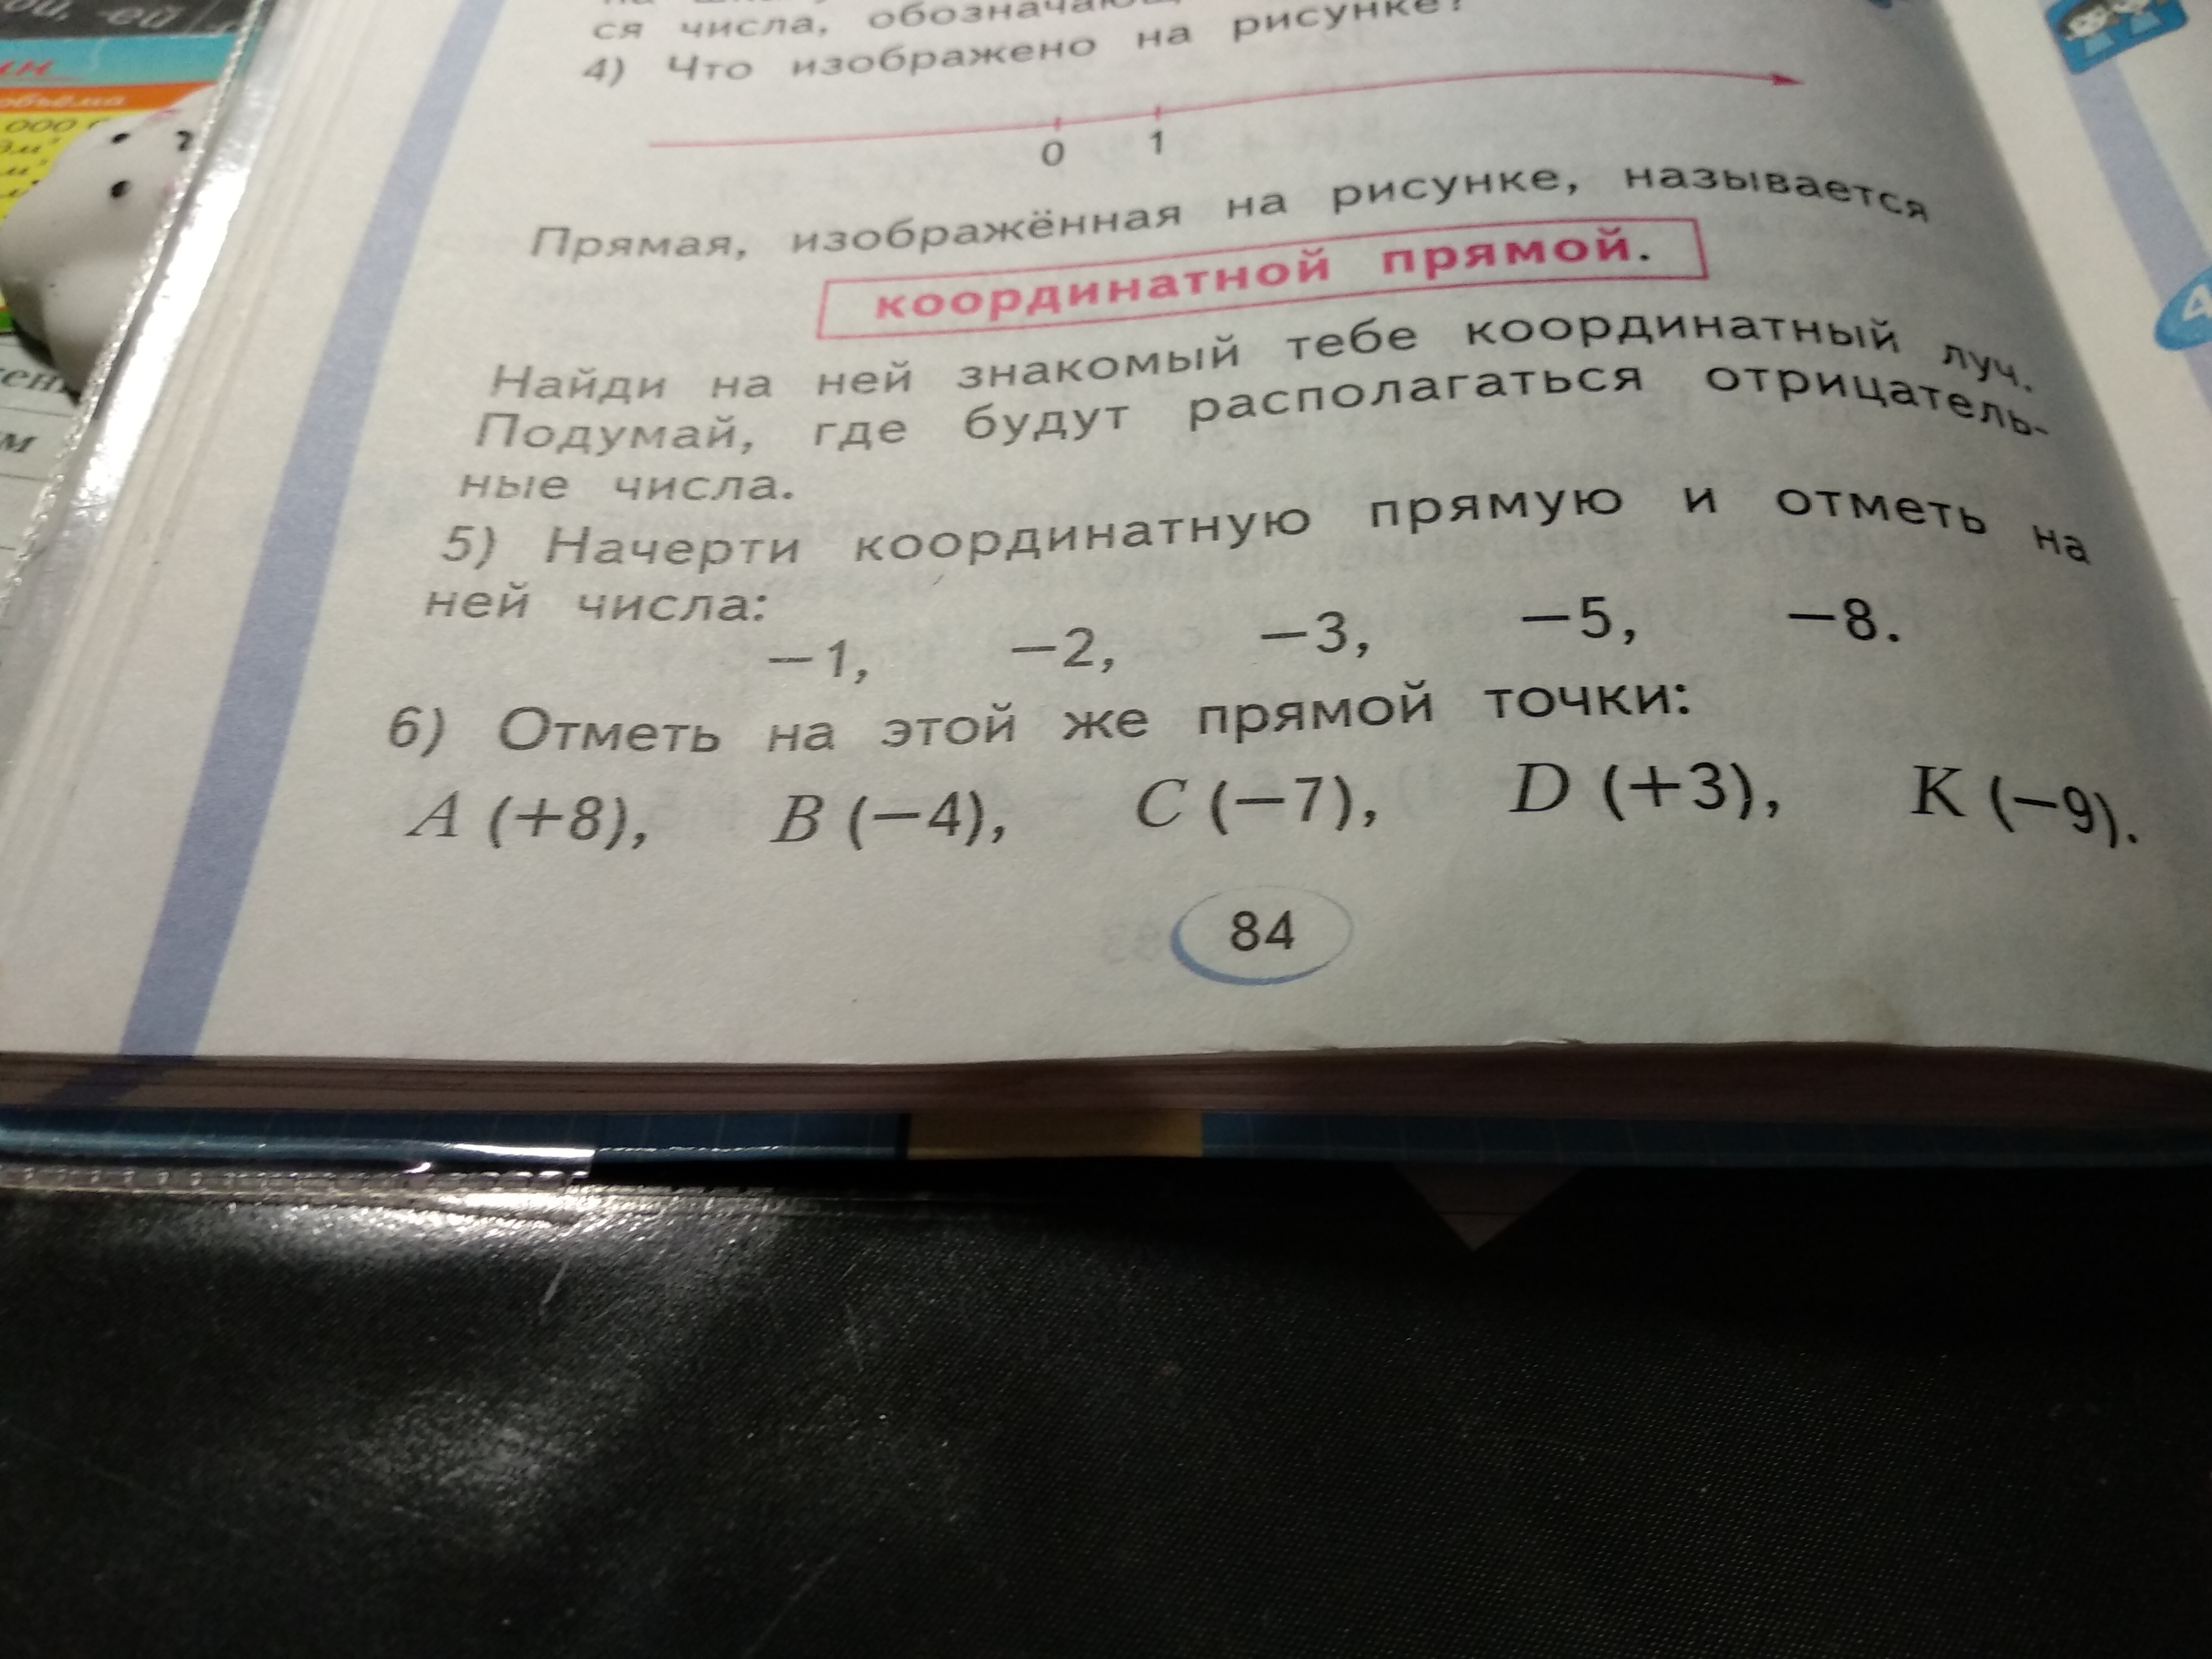 ся числа,
4) Что изображено на рисунке?
0 1
Прямая, изображённая на рисунке, называется
координатной прямой.
Найди на ней знакомый тебе координатный луч.
Подумай, где будут располагаться отрицатель-
ные числа.
5) Начерти координатную прямую и отметь на
ней числа:
−1, −2, −3, −5, −8.
6) Отметь на этой же прямой точки:
A (+8), B (−4), C (−7), D (+3), K (−9).
84
-ей
000
4